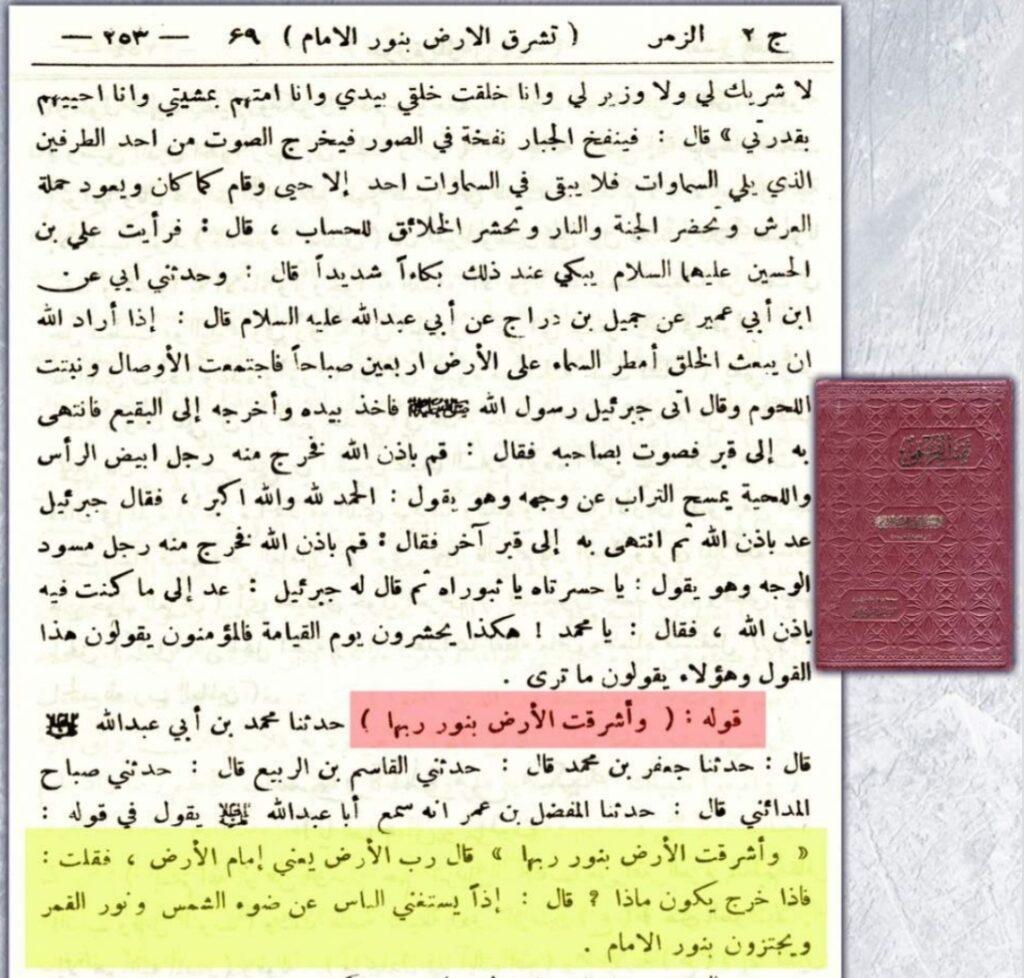 ج ٢ الزمر ( تشرق الارض بنور الامام ) ٦٩ — ٢٥٣ —
لا شريك لي ولا وزير لي وانا خلقت خلقي بيدي وانا امتهم بمشيتي وانا احييهم
بقدرتي » قال : فينفخ الجبار نفخة في الصور فيخرج الصوت من احد الطرفين
الذي يلي السماوات فلا يبقى في السماوات احد إلا حيى وقام كما كان ويعود حملة
العرش وتحضر الجنة والنار وتحشر الخلائق للحساب ، قال : فرأيت علي بن
الحسين عليهما السلام يبكي عند ذلك بكاءاً شديداً قال : وحدثني ابي عن
ابن أبي عمير عن جميل بن دراج عن أبي عبدالله عليه السلام قال : إذا أراد الله
ان يبعث الخلق أمطر السماء على الأرض اربعين صباحاً فاجتمعت الأوصال ونبتت
اللحوم وقال اتى جبرئيل رسول الله ﷺ فاخذ بيده وأخرجه إلى البقيع فانتهى
به إلى قبر فصوت بصاحبه فقال : قم باذن الله فخرج منه رجل ابيض الرأس
واللحية يمسح التراب عن وجهه وهو يقول : الحمد لله والله اكبر ، فقال جبرئيل
عد باذن الله ثم انتهى به إلى قبر آخر فقال : قم باذن الله فخرج منه رجل مسود
الوجه وهو يقول : يا حسرتاه يا ثبوراه ثم قال له جبرئيل : عد إلى ما كنت فيه
باذن الله ، فقال : يا محمد ! هكذا يحشرون يوم القيامة فالمؤمنون يقولون هذا
القول وهؤلاء يقولون ما ترى .
قوله : ( وأشرقت الأرض بنور ربها ) حدثنا محمد بن أبي عبدالله
قال : حدثنا جعفر بن محمد قال : حدثني القاسم بن الربيع قال : حدثني صباح
المدائني قال : حدثنا المفضل بن عمر انه سمع أبا عبدالله يقول في قوله :
« وأشرقت الأرض بنور ربها » قال رب الأرض يعني إمام الأرض ، فقلت :
فاذا خرج يكون ماذا ? قال : إذاً يستغني الناس عن ضوء الشمس ونور القمر
ويجتزون بنور الامام .